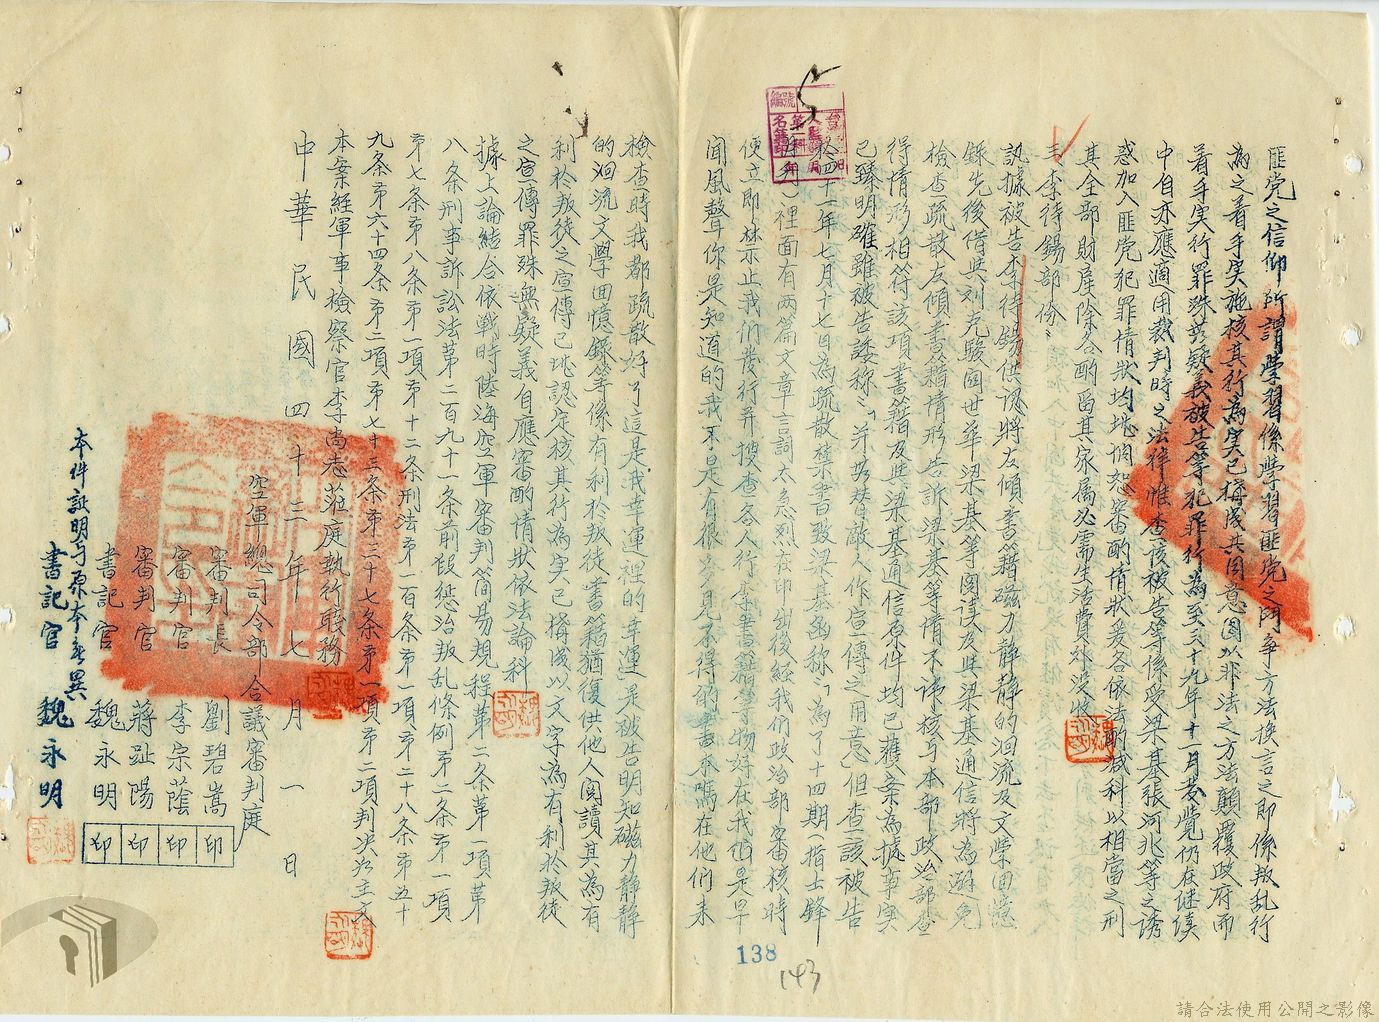 匪党之信仰所謂學習係學習匪党之鬥爭方法換言之即係叛乱行
為之着手实施核其行為实已構成共同意圖以非法之方法顛覆政府而
着手实行罪殊無疑義被告等犯罪行為至三十九年十一月发觉仍在继续
中自亦應適用裁判時之法律惟查該被告等係受梁基張河兆等之誘
惑加入匪党犯罪情狀均堪憫恕審酌情狀爰各依法酌减科以相當之刑
其全部財産除各酌留其家属必需生活費外没收
三、李待錫部份、
訊據被告李待錫供認將左傾書籍磁力静静的洄流及文学回憶
錄先後借與刘克駿阅世華梁基等阅读及與梁基通信將為避免
檢查疏散左傾書籍情形告訴梁基等情不諱核与本部政治部查
得情形相符該項書籍及與梁基通信原件均已獲案為據事实
已臻明確雖被告諉称「并無替敵人作宣傳之用意」但查該被告
於四十一年七月十七日為疏散禁書致梁基函称「為了十四期(指士鋒
月刊)裡面有两篇文章言詞太急烈在印出後經我們政治部審核時
便立即禁止我們发行并搜查各人行李書籍等物好在我們是早
聞風聲你是知道的我不是有很多見不得的書本嗎在他們未
檢查時我都疏散好了這是我幸運裡的幸運」是被告明知磁力静静
的洄流文學回憶錄等係有利於叛徒書籍猶復供他人阅讀其為有
利於叛徒之宣傳已堪認定核其行為实已構成以文字為有利於叛徒
之宣傳罪殊無疑義自應審酌情狀依法論科
據上論結合依戰時陸海空軍審判简易規程第二条第一項第
八条刑事訴訟法第二百九十一条前段惩治叛乱條例第二条第一項
第七条第八条第一項第十二条刑法第一百条第一項第二十八条第五十
九条第六十四条第二項第七十三条第三十七条第一項第二項判决如主文
本案經軍事檢察官李尚志蒞庭執行職務
中華民國四十三年七月一日
空軍總司令部合議審判庭
審判長 劉碧嵩 印
審判官 李宗蔭 印
審判官 蔣趾陽 印
書記官 魏永明 印
本件証明与原本無異
書記官 魏永明
138
143
請合法使用公開之影像